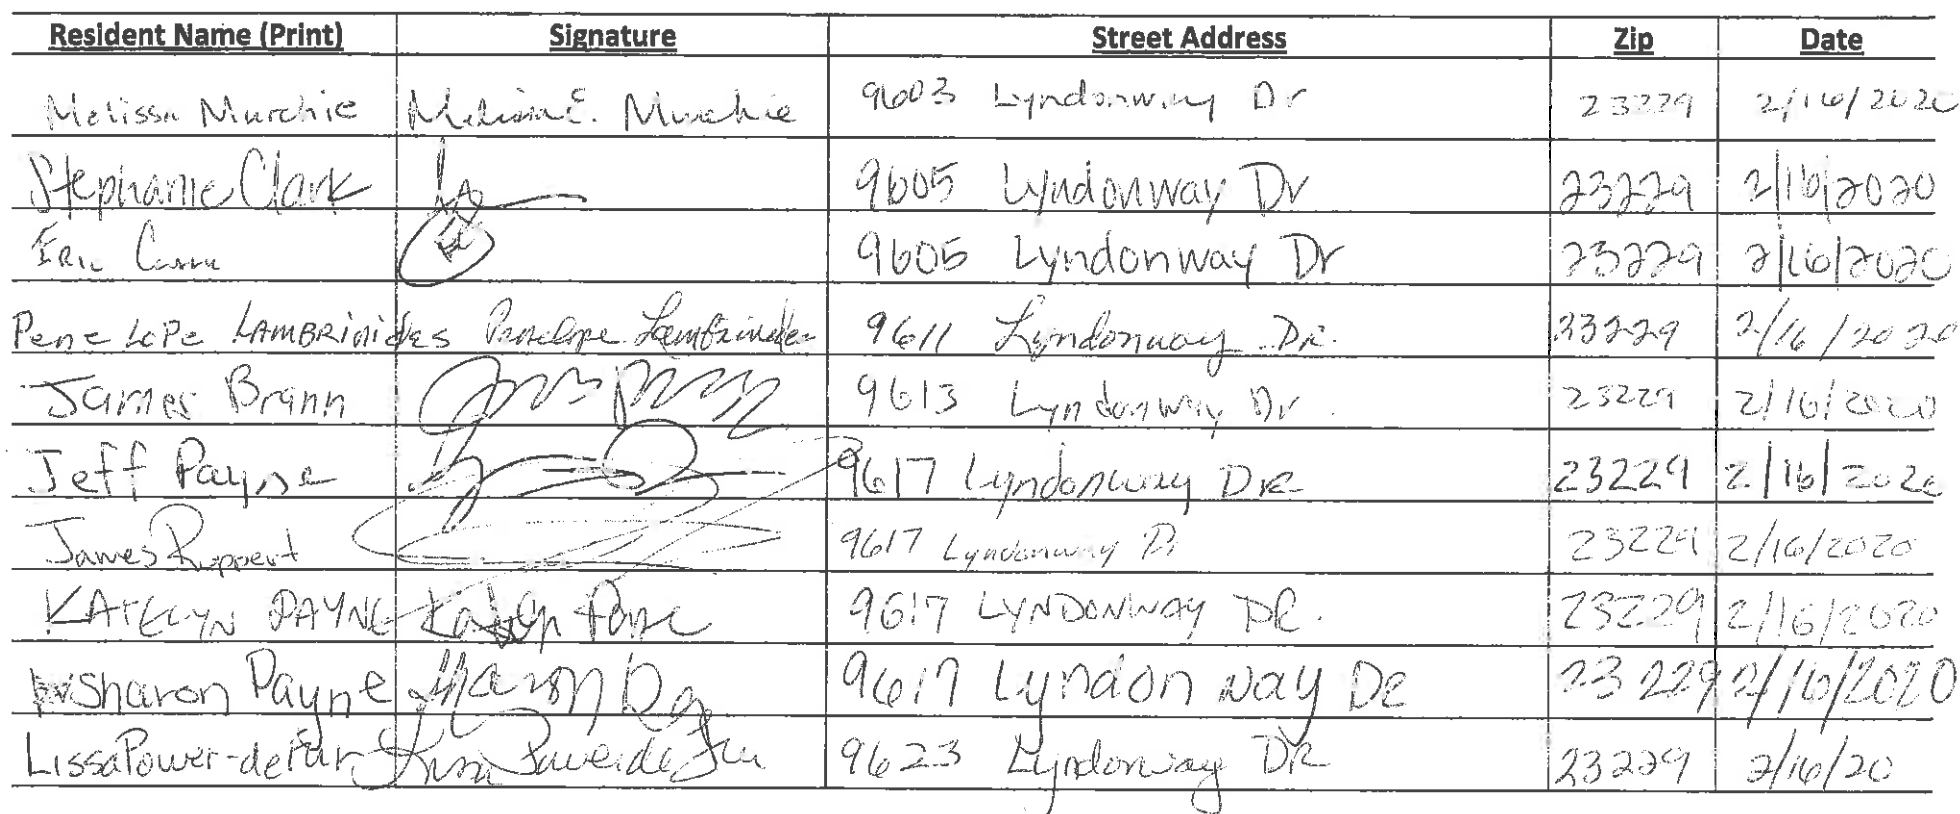 Resident Name (Print) Signature Street Address Zip Date
Melissa Murchie Melissa E. Murchie 9603 Lyndonway Dr 23229 2/16/2020
Stephanie Clark 9605 Lyndonway Dr 23229 2/16/2020
Eric 9605 Lyndonway Dr 23229 2/16/2020
Penelope LAMBRINIDES Penelope Lambrinides 9611 Lyndonway DR. 23229 2/16/2020
James Brann 9613 Lyndonway Dr. 23229 2/16/2020
Jeff Payne 9617 Lyndonway DR 23229 2/16/2020
James Ruppert 9617 Lyndonway Dr 23229 2/16/2020
KATELYN PAYNE Katelyn Payne 9617 LYNDONWAY DR. 23229 2/16/2020
Sharon Payne Sharon 9617 Lyndon way DR 23229 2/16/2020
Lissa Power-deFur Lissa Power-deFur 9623 Lyndonway DR 23229 2/16/20